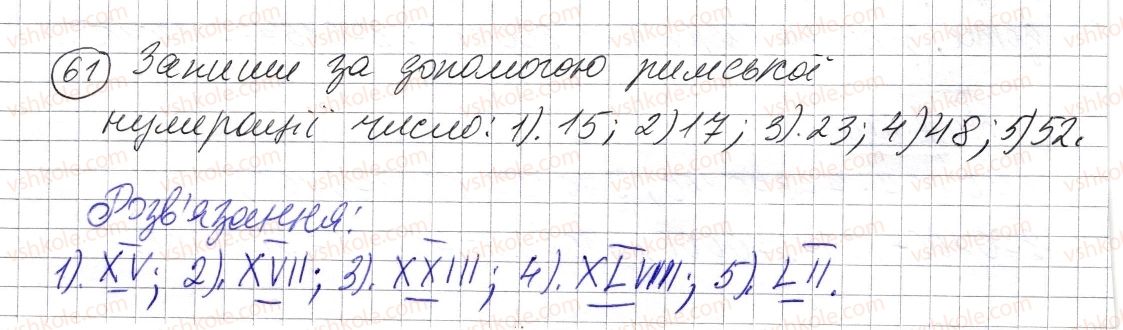 61 Запиши за допомогою римської
нумерації число: 1). 15; 2) 17; 3). 23; 4) 48; 5) 52.
Розв'язання:
1). XV; 2). XVII; 3). XXIII; 4). XLVIII; 5). LII.